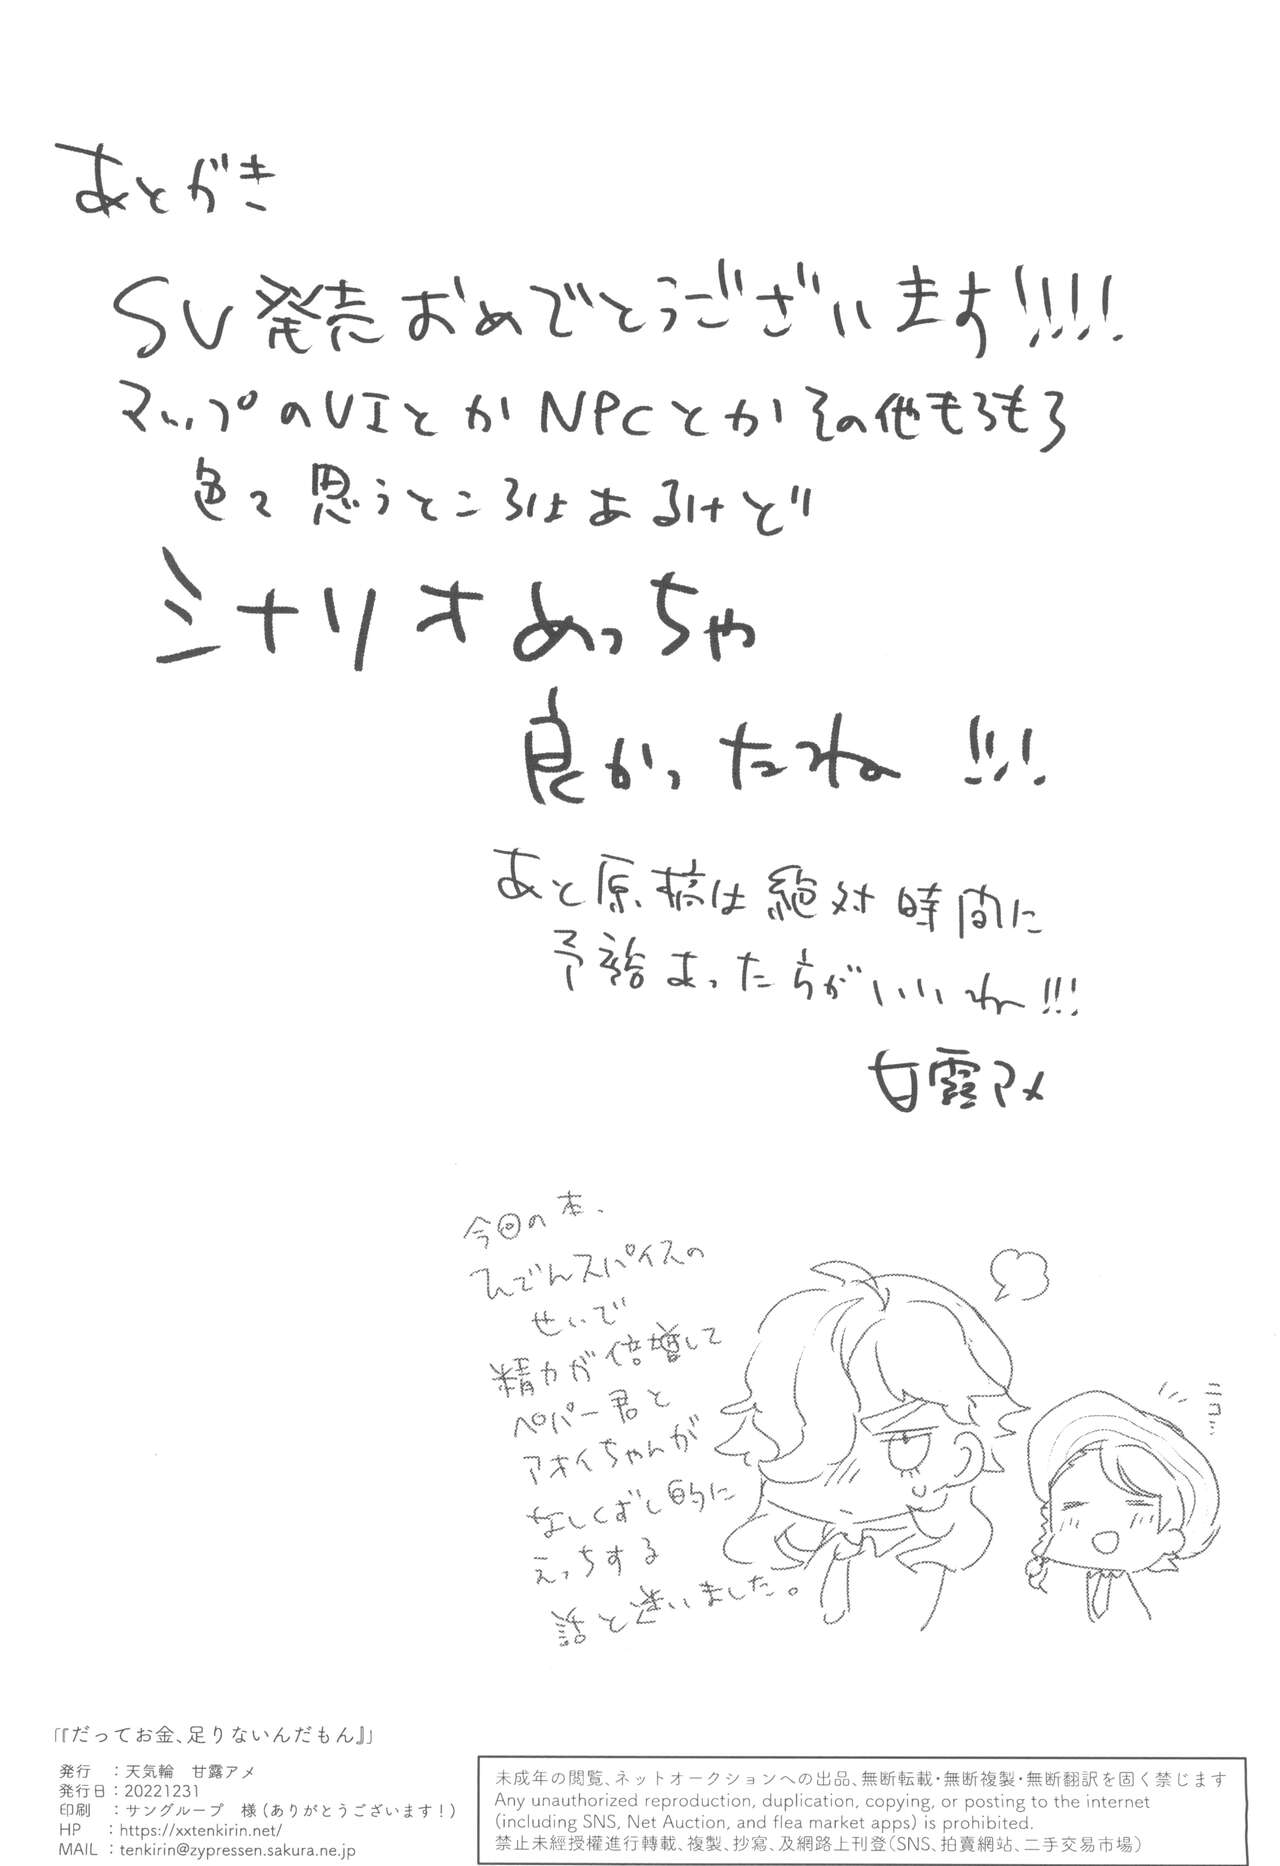 あとがき
SV発売おめでとうございます!!!!
マップのUIとかNPCとかその他もろもろ
色々思うところはあるけど
シナリオめっちゃ
良かったね!!!
あと原稿は絶対時間に
予裕あった方がいいね!!!
甘露アメ
今回の本、
ひでんスパイスの
せいで
精力が倍増して
ペパー君と
アオイちゃんが
なしくずし的に
えっちする
話と迷いました。
ニコッ
「『だってお金、足りないんだもん』」
発行 ：天気輪 甘露アメ
発行日：20221231
印刷 ：サングループ 様（ありがとうございます！）
HP ：https://xxtenkirin.net/
MAIL ：tenkirin@zypressen.sakura.ne.jp
未成年の閲覧、ネットオークションへの出品、無断転載・無断複製・無断翻訳を固く禁じます
Any unauthorized reproduction, duplication, copying, or posting to the internet
(including SNS, Net Auction, and flea market apps) is prohibited.
禁止未經授權進行轉載、複製、抄寫、及網路上刊登（SNS、拍賣網站、二手交易市場）